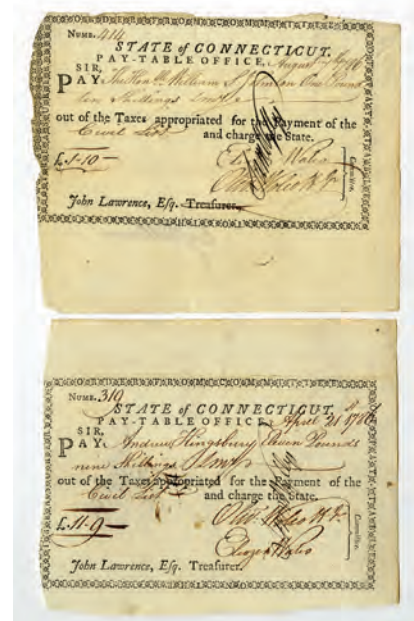 NUMB. 414
STATE of CONNECTICUT.
PAY-TABLE OFFICE, August
SIR,
PAY The Hon. William S Johnson One Pound
ten Shillings
out of the Taxes appropriated for the Payment of the
Civil List and charge the State.
£.1-10-
Committee.
John Lawrence, Esq. Treasurer.
NUMB. 319
STATE of CONNECTICUT,
PAY-TABLE OFFICE, April 21
SIR,
PAY Andrew Kingsbury Eleven Pounds
nine Shillings
out of the Taxes appropriated for the Payment of the
Civil List and charge the State.
£.11-9-
Eleazer Wales
Committee.
John Lawrence, Esq. Treasurer.